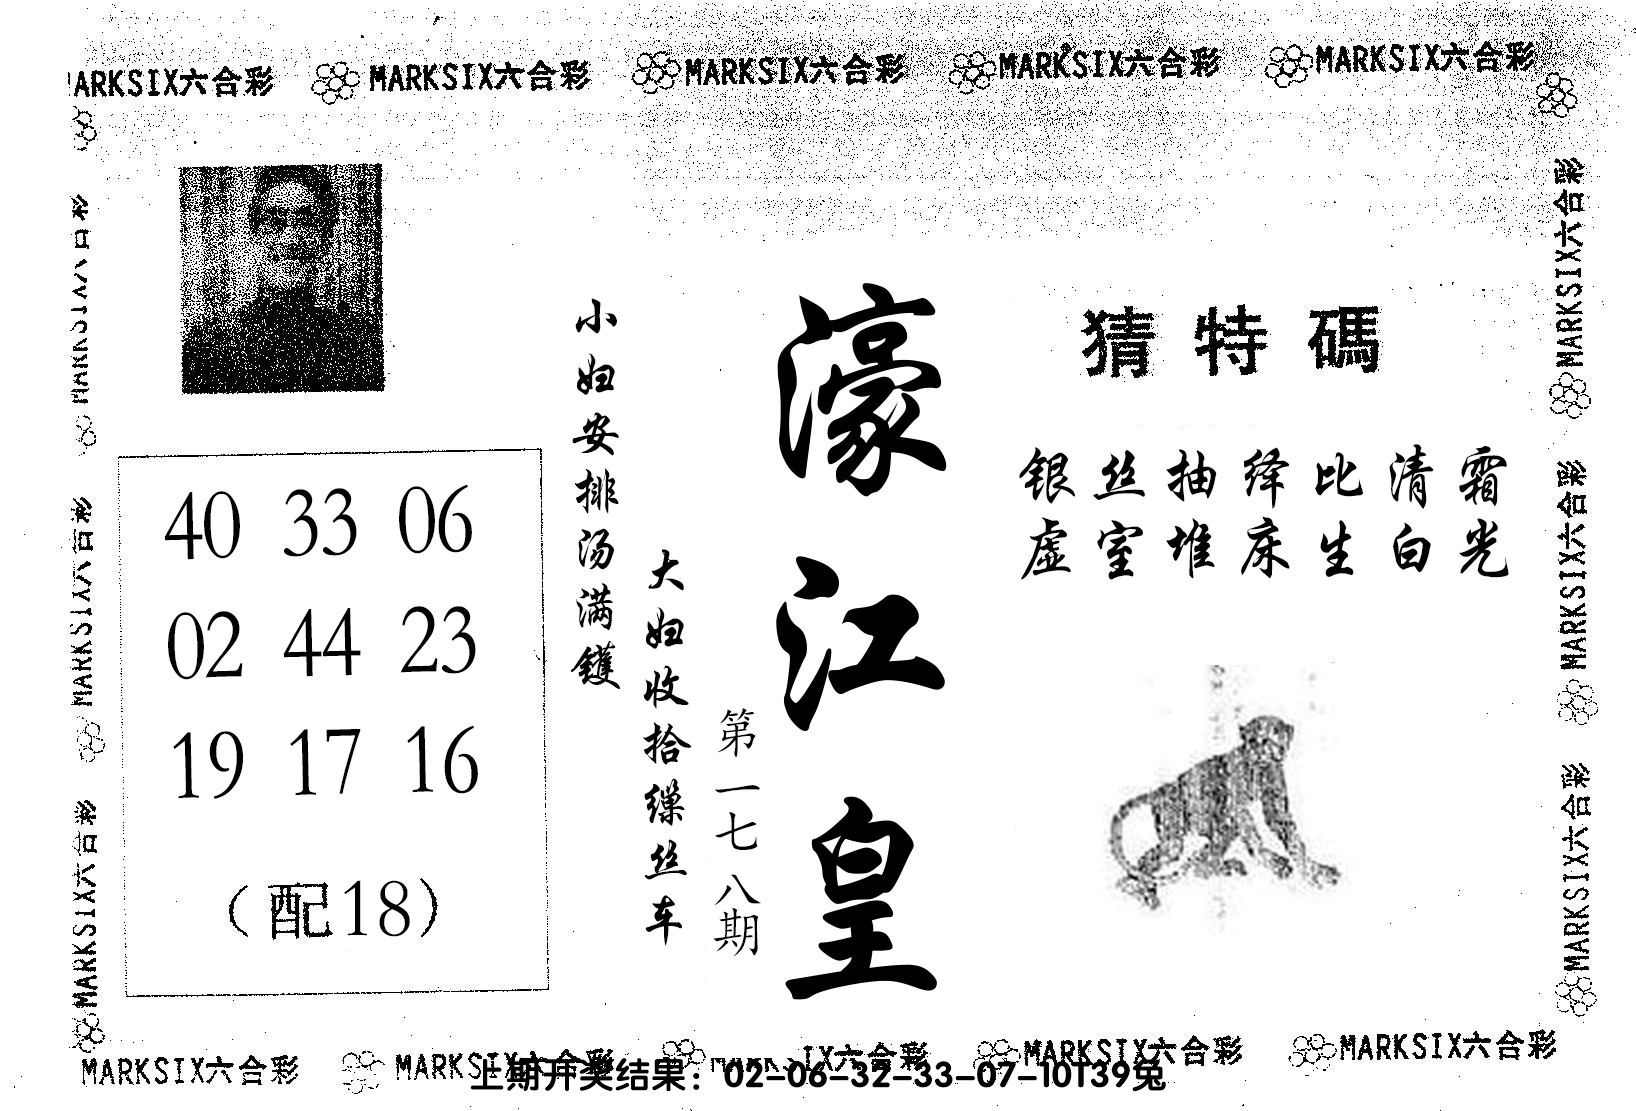 MARKSIX六合彩 MARKSIX六合彩 MARKSIX六合彩 MARKSIX六合彩 MARKSIX六合彩
猜特碼
银丝抽绎比清霜
虚室堆床生白光
濠江皇
第一七八期
大妇收拾缫丝车
小妇安排汤满镬
40 33 06
02 44 23
19 17 16
(配18)
MARKSIX六合彩
MARKSIX六合彩
MARKSIX六合彩
MARKSIX六合彩
MARKSIX六合彩
MARKSIX六合彩
MARKSIX六合彩 MARKSIX六合彩 MARKSIX六合彩 MARKSIX六合彩 MARKSIX六合彩
上期开奖结果：02-06-32-33-07-10T39兔